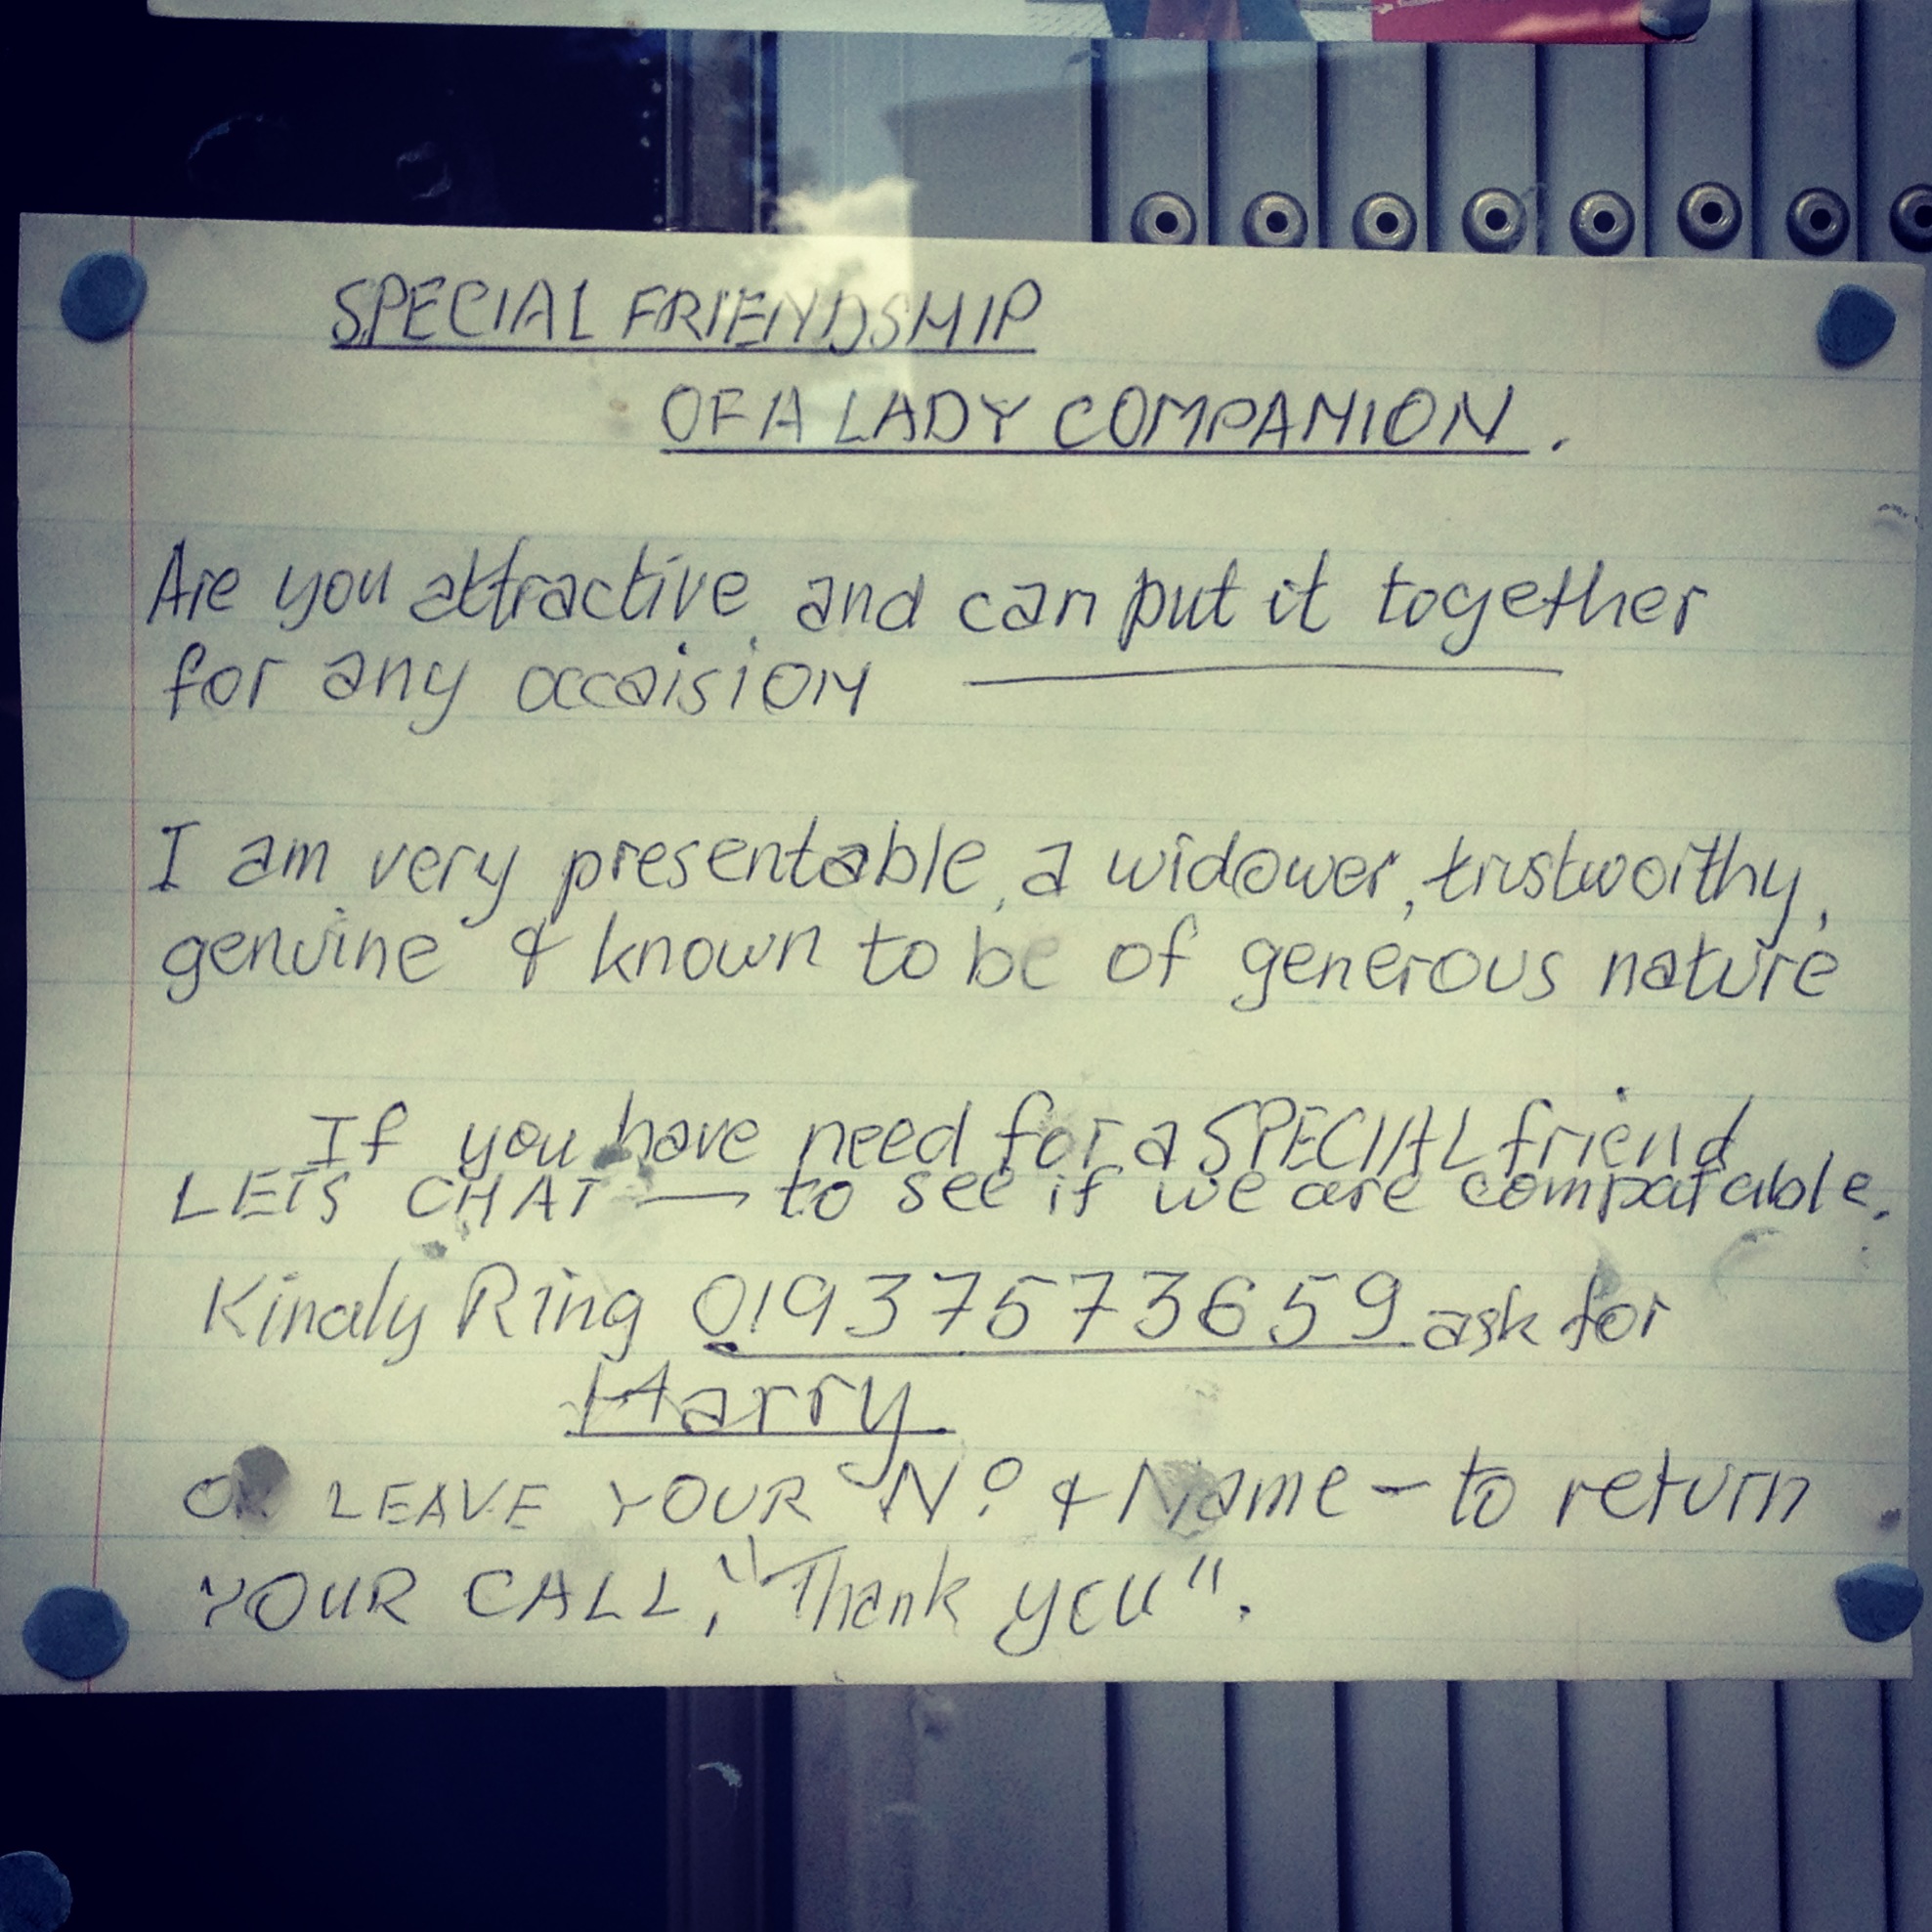 SPECIAL FRIENDSHIP
OF A LADY COMPANION.
Are you attractive and can put it together
for any occaision
I am very presentable, a widower, trustworthy,
genuine & known to be of generous nature
If you have need for a SPECIAL friend
LETS CHAT — to see if we are compatable.
Kindly Ring 01937573659 ask for
Harry
OR LEAVE YOUR Nº & Name – to return
YOUR CALL, "Thank you".